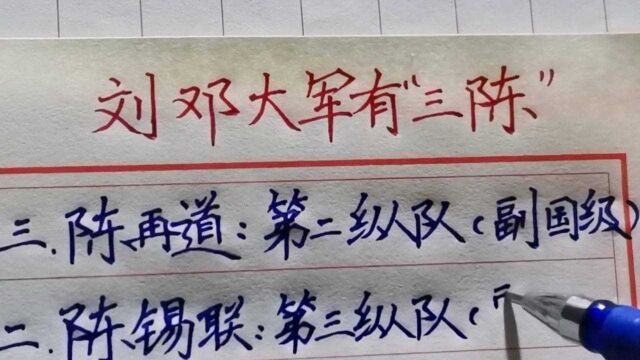 刘邓大军有“三陈”
三.陈再道:第二纵队(副国级)
二.陈锡联:第三纵队(